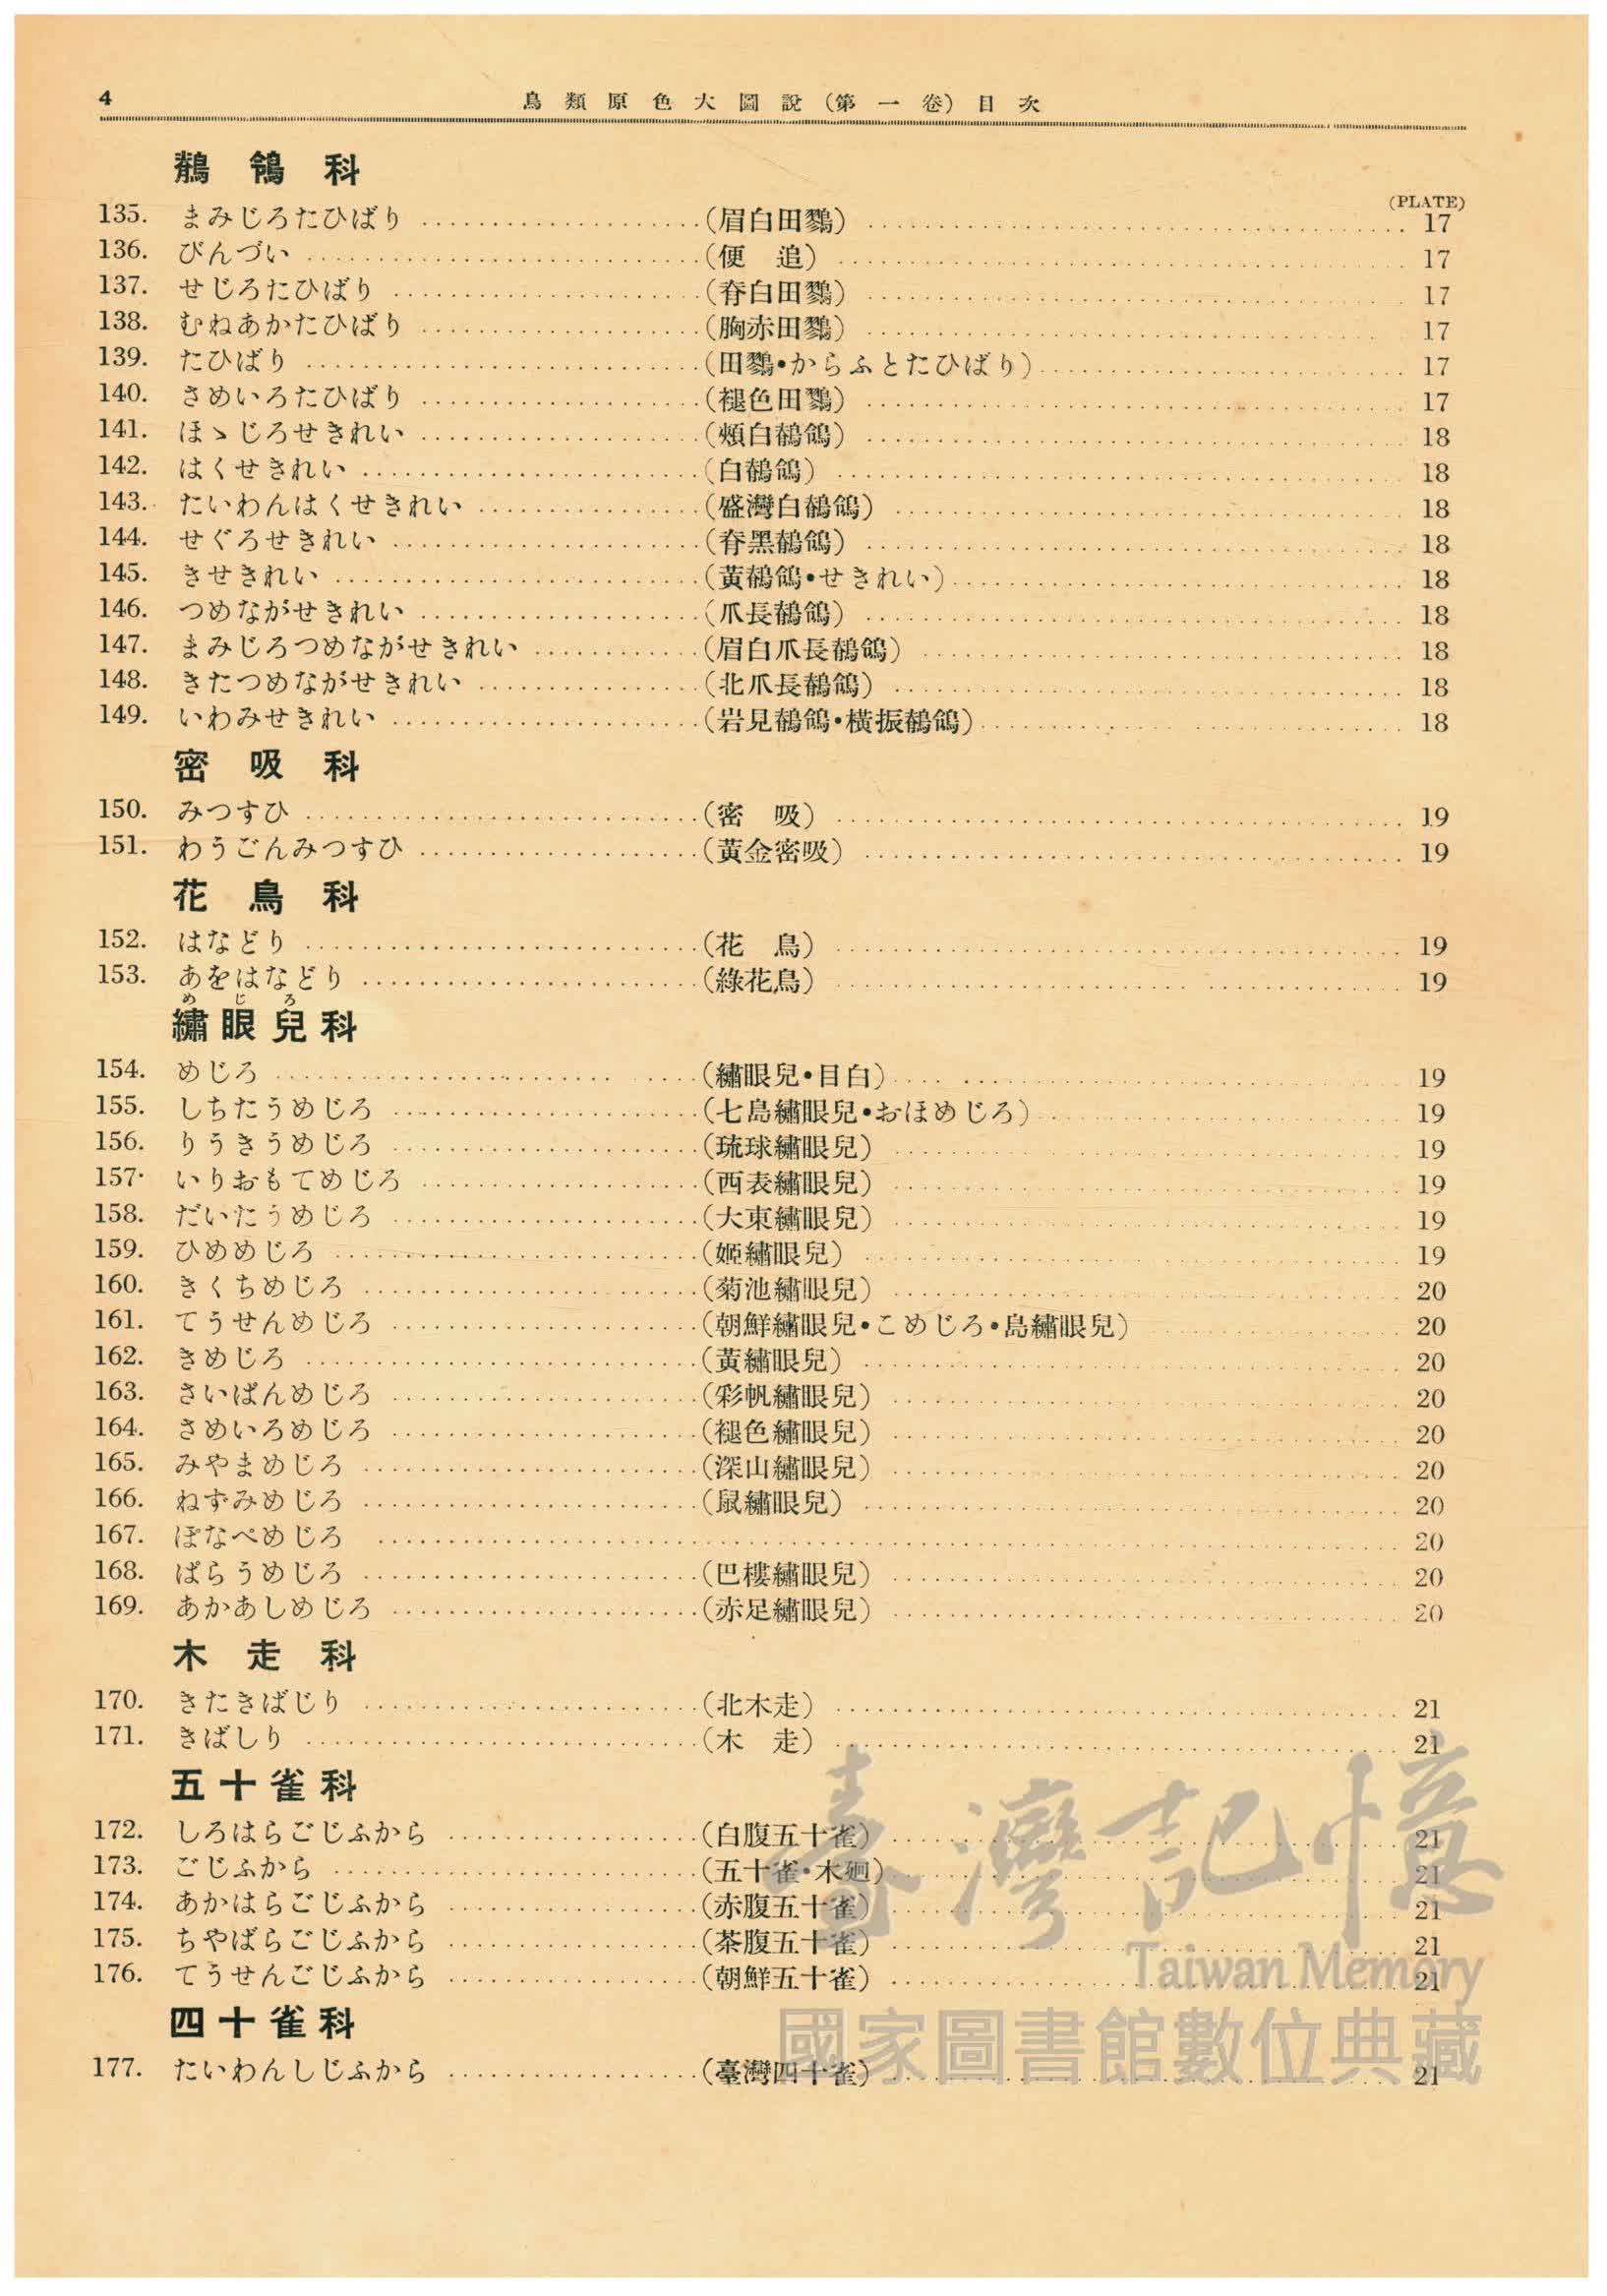 4
鳥類原色大圖說（第一卷）目次
鶺鴒科
(PLATE)
135. まみじろたひばり（眉白田鷚）17
136. びんづい（便　追）17
137. せじろたひばり（脊白田鷚）17
138. むねあかたひばり（胸赤田鷚）17
139. たひばり（田鷚•からふとたひばり）17
140. さめいろたひばり（褪色田鷚）17
141. ほゝじろせきれい（頰白鶺鴒）18
142. はくせきれい（白鶺鴒）18
143. たいわんはくせきれい（盛灣白鶺鴒）18
144. せぐろせきれい（脊黑鶺鴒）18
145. きせきれい（黃鶺鴒•せきれい）18
146. つめながせきれい（爪長鶺鴒）18
147. まみじろつめながせきれい（眉白爪長鶺鴒）18
148. きたつめながせきれい（北爪長鶺鴒）18
149. いわみせきれい（岩見鶺鴒•橫振鶺鴒）18
密吸科
150. みつすひ（密　吸）19
151. わうごんみつすひ（黃金密吸）19
花鳥科
152. はなどり（花　鳥）19
153. あをはなどり（綠花鳥）19
めじろ
繡眼兒科
154. めじろ（繡眼兒•目白）19
155. しちたうめじろ（七島繡眼兒•おほめじろ）19
156. りうきうめじろ（琉球繡眼兒）19
157. いりおもてめじろ（西表繡眼兒）19
158. だいたうめじろ（大東繡眼兒）19
159. ひめめじろ（姬繡眼兒）19
160. きくちめじろ（菊池繡眼兒）20
161. てうせんめじろ（朝鮮繡眼兒•こめじろ•島繡眼兒）20
162. きめじろ（黃繡眼兒）20
163. さいぱんめじろ（彩帆繡眼兒）20
164. さめいろめじろ（褪色繡眼兒）20
165. みやまめじろ（深山繡眼兒）20
166. ねずみめじろ（鼠繡眼兒）20
167. ぽなぺめじろ 20
168. ぱらうめじろ（巴樓繡眼兒）20
169. あかあしめじろ（赤足繡眼兒）20
木走科
170. きたきばじり（北木走）21
171. きばしり（木　走）21
五十雀科
172. しろはらごじふから（白腹五十雀）21
173. ごじふから（五十雀•木廻）21
174. あかはらごじふから（赤腹五十雀）21
175. ちやばらごじふから（茶腹五十雀）21
176. てうせんごじふから（朝鮮五十雀）21
四十雀科
177. たいわんしじふから（臺灣四十雀）21
臺灣記憶
Taiwan Memory
國家圖書館數位典藏